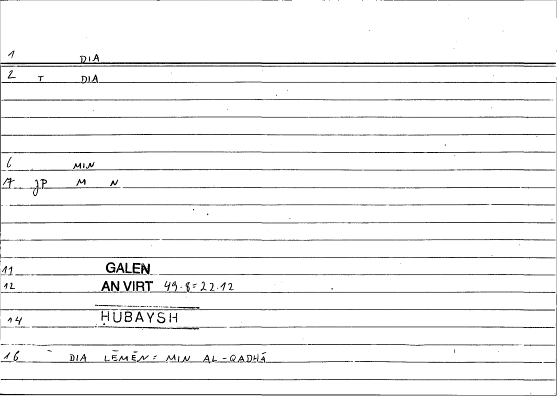 1 DIA
2 T DIA
6 MIN
7 JP M N
11 GALEN
12 AN VIRT 49.8=22.12
14 HUBAYSH
16 DIA LĒMĒN= MIN AL-QADHĀ